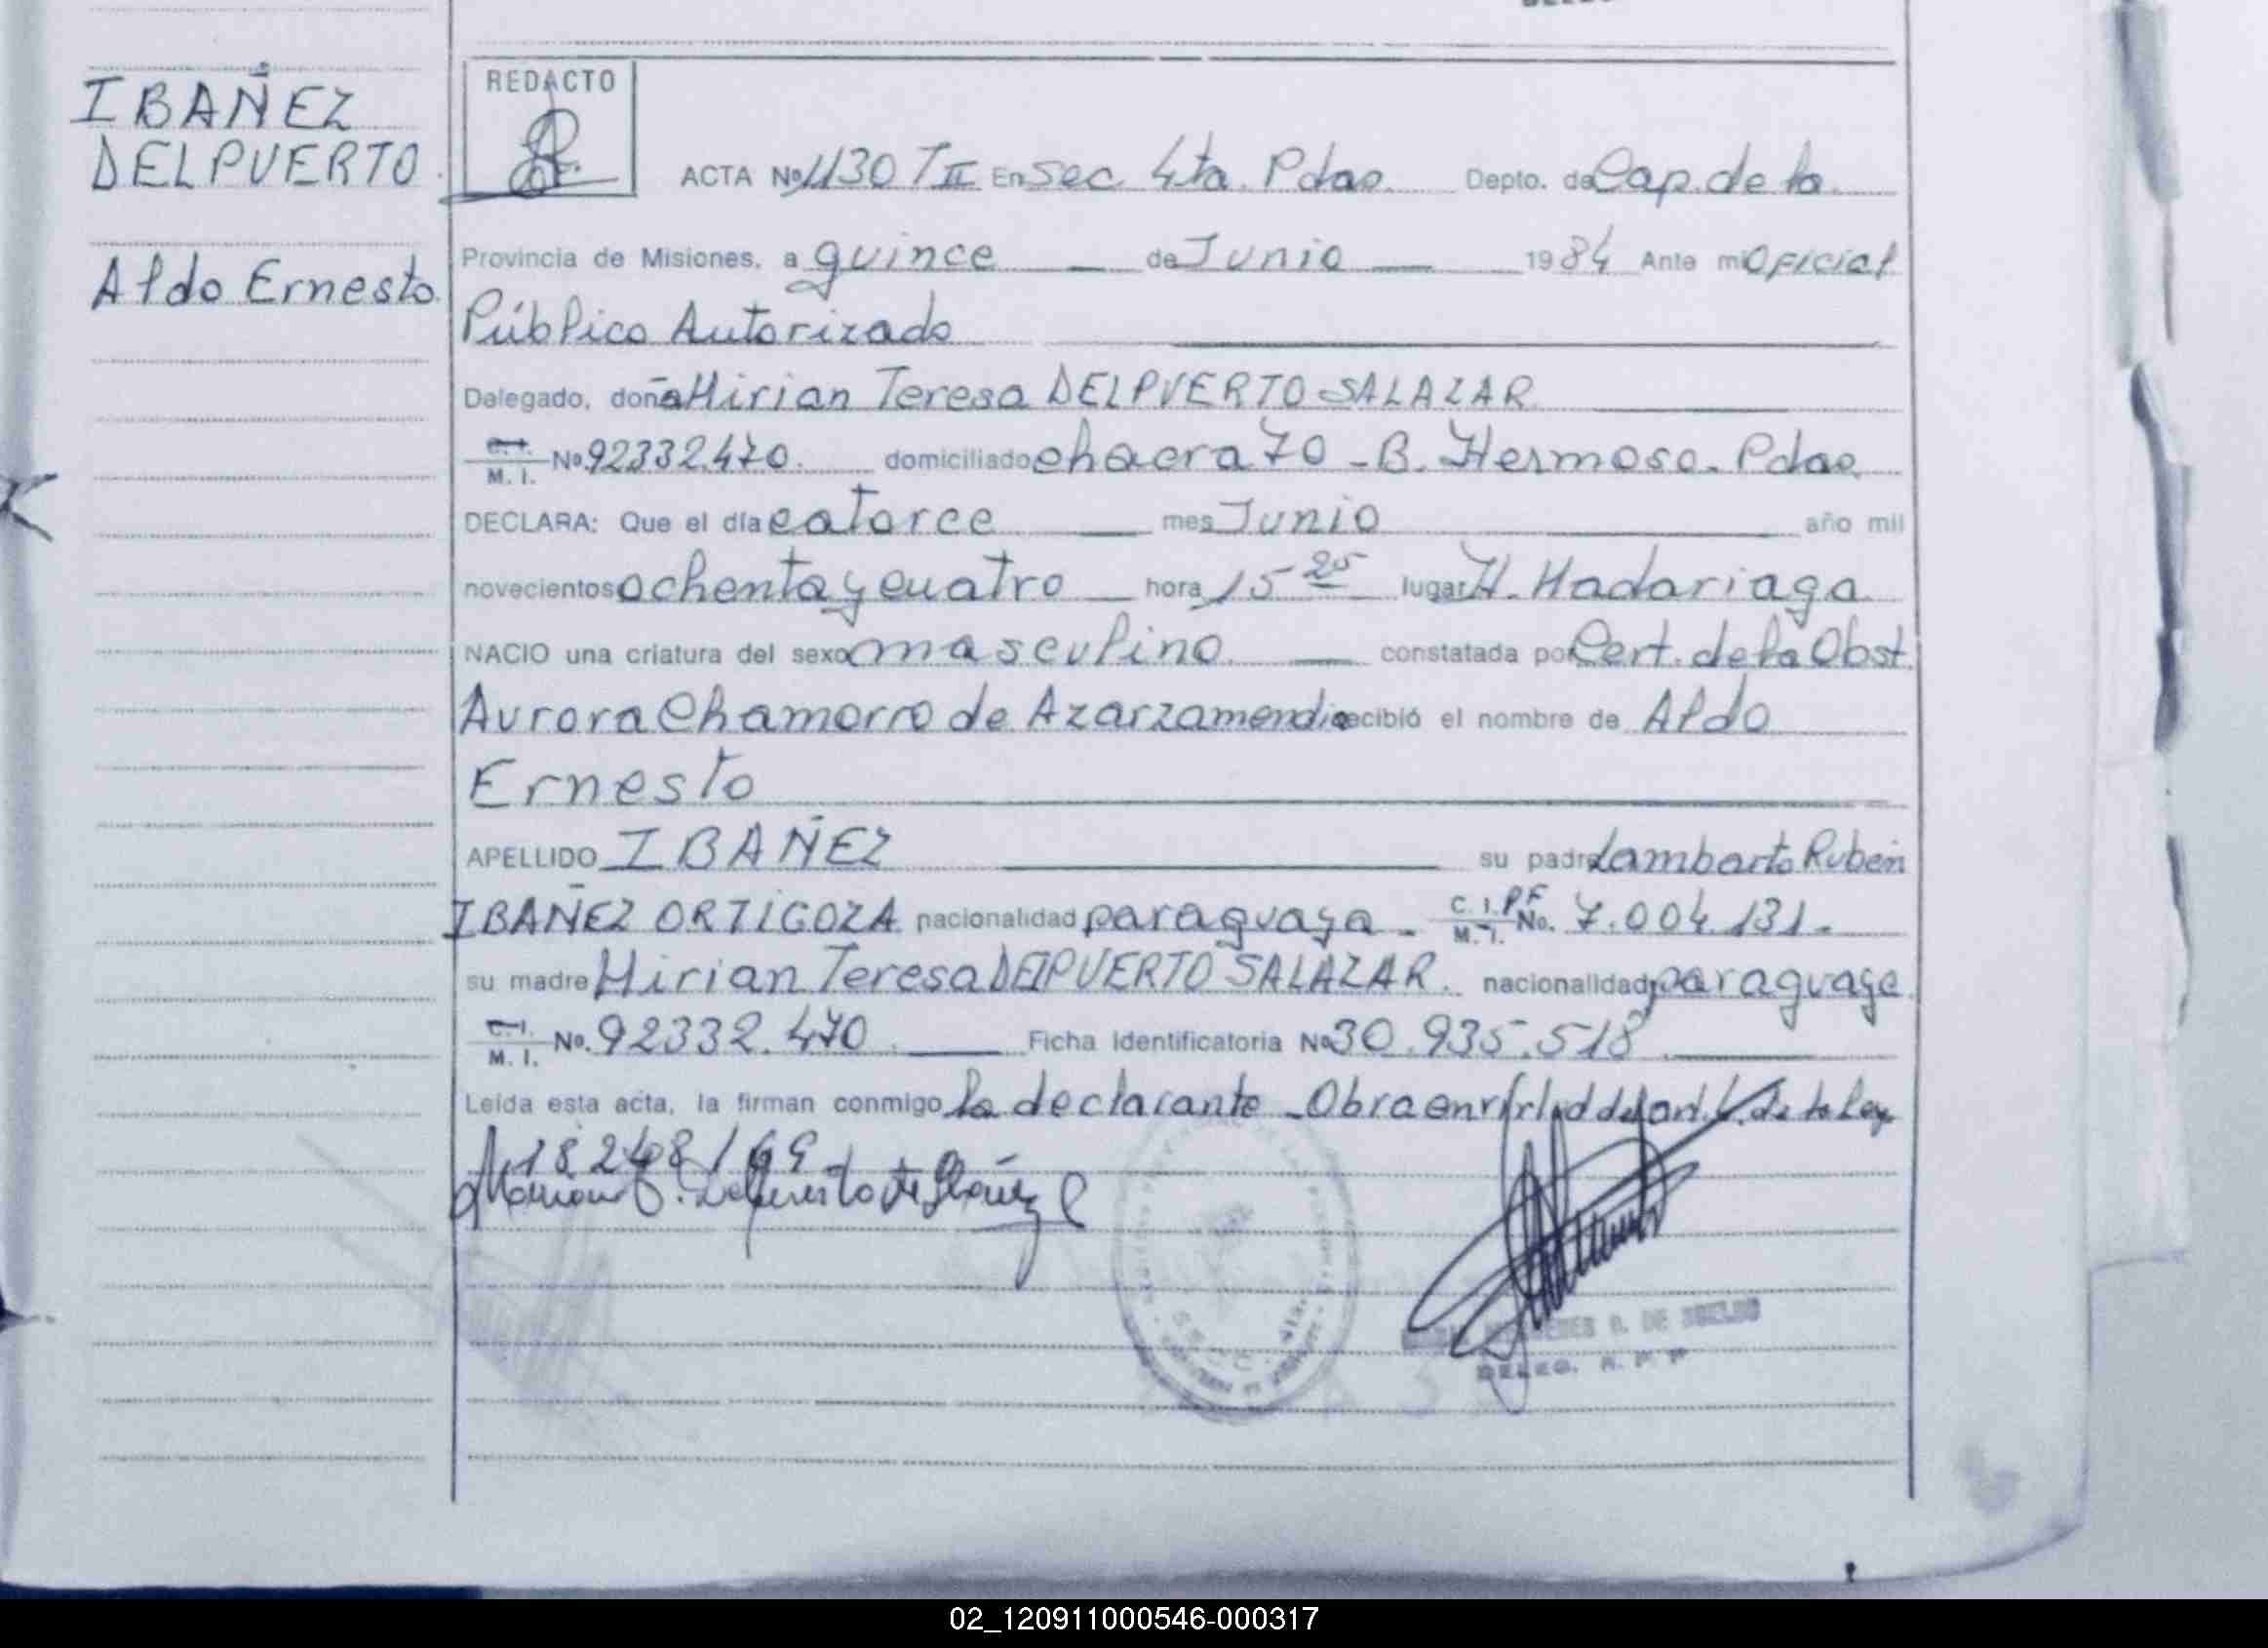 IBAÑEZ
DELPUERTO
Aldo Ernesto
REDACTO
ACTA Nº 1130 T II En Sec 4ta. Pdas. Depto. de Cap. de la
Provincia de Misiones, a quince de Junio 1984 Ante mi Oficial
Público Autorizado
Delegado, doña Mirian Teresa DELPUERTO SALAZAR
C.I. M. I. Nº 92332.470. domiciliado chacra 70 - B. Hermoso. Pdas
DECLARA: Que el día catorce mes Junio año mil
novecientos ochenta y cuatro hora 15 25 lugar H. Madariaga
NACIO una criatura del sexo masculino constatada por Cert. de la Obst.
Aurora Chamorro de Azarzamendia recibió el nombre de Aldo
Ernesto
APELLIDO IBAÑEZ su padre Lamberto Rubén
IBAÑEZ ORTIGOZA nacionalidad paraguaya - C. I. P.F M. I. No. 7.004.131.-
su madre Mirian Teresa DELPUERTO SALAZAR. nacionalidad paraguaya
C.I. M. I. No. 92332.470 Ficha identificatoria Nº 30.935.518
Leída esta acta, la firman conmigo la declarante - Obra en virtud del art. de la Ley
18248/69
DE SUELDO
DELEG. R. P. P
02_120911000546-000317